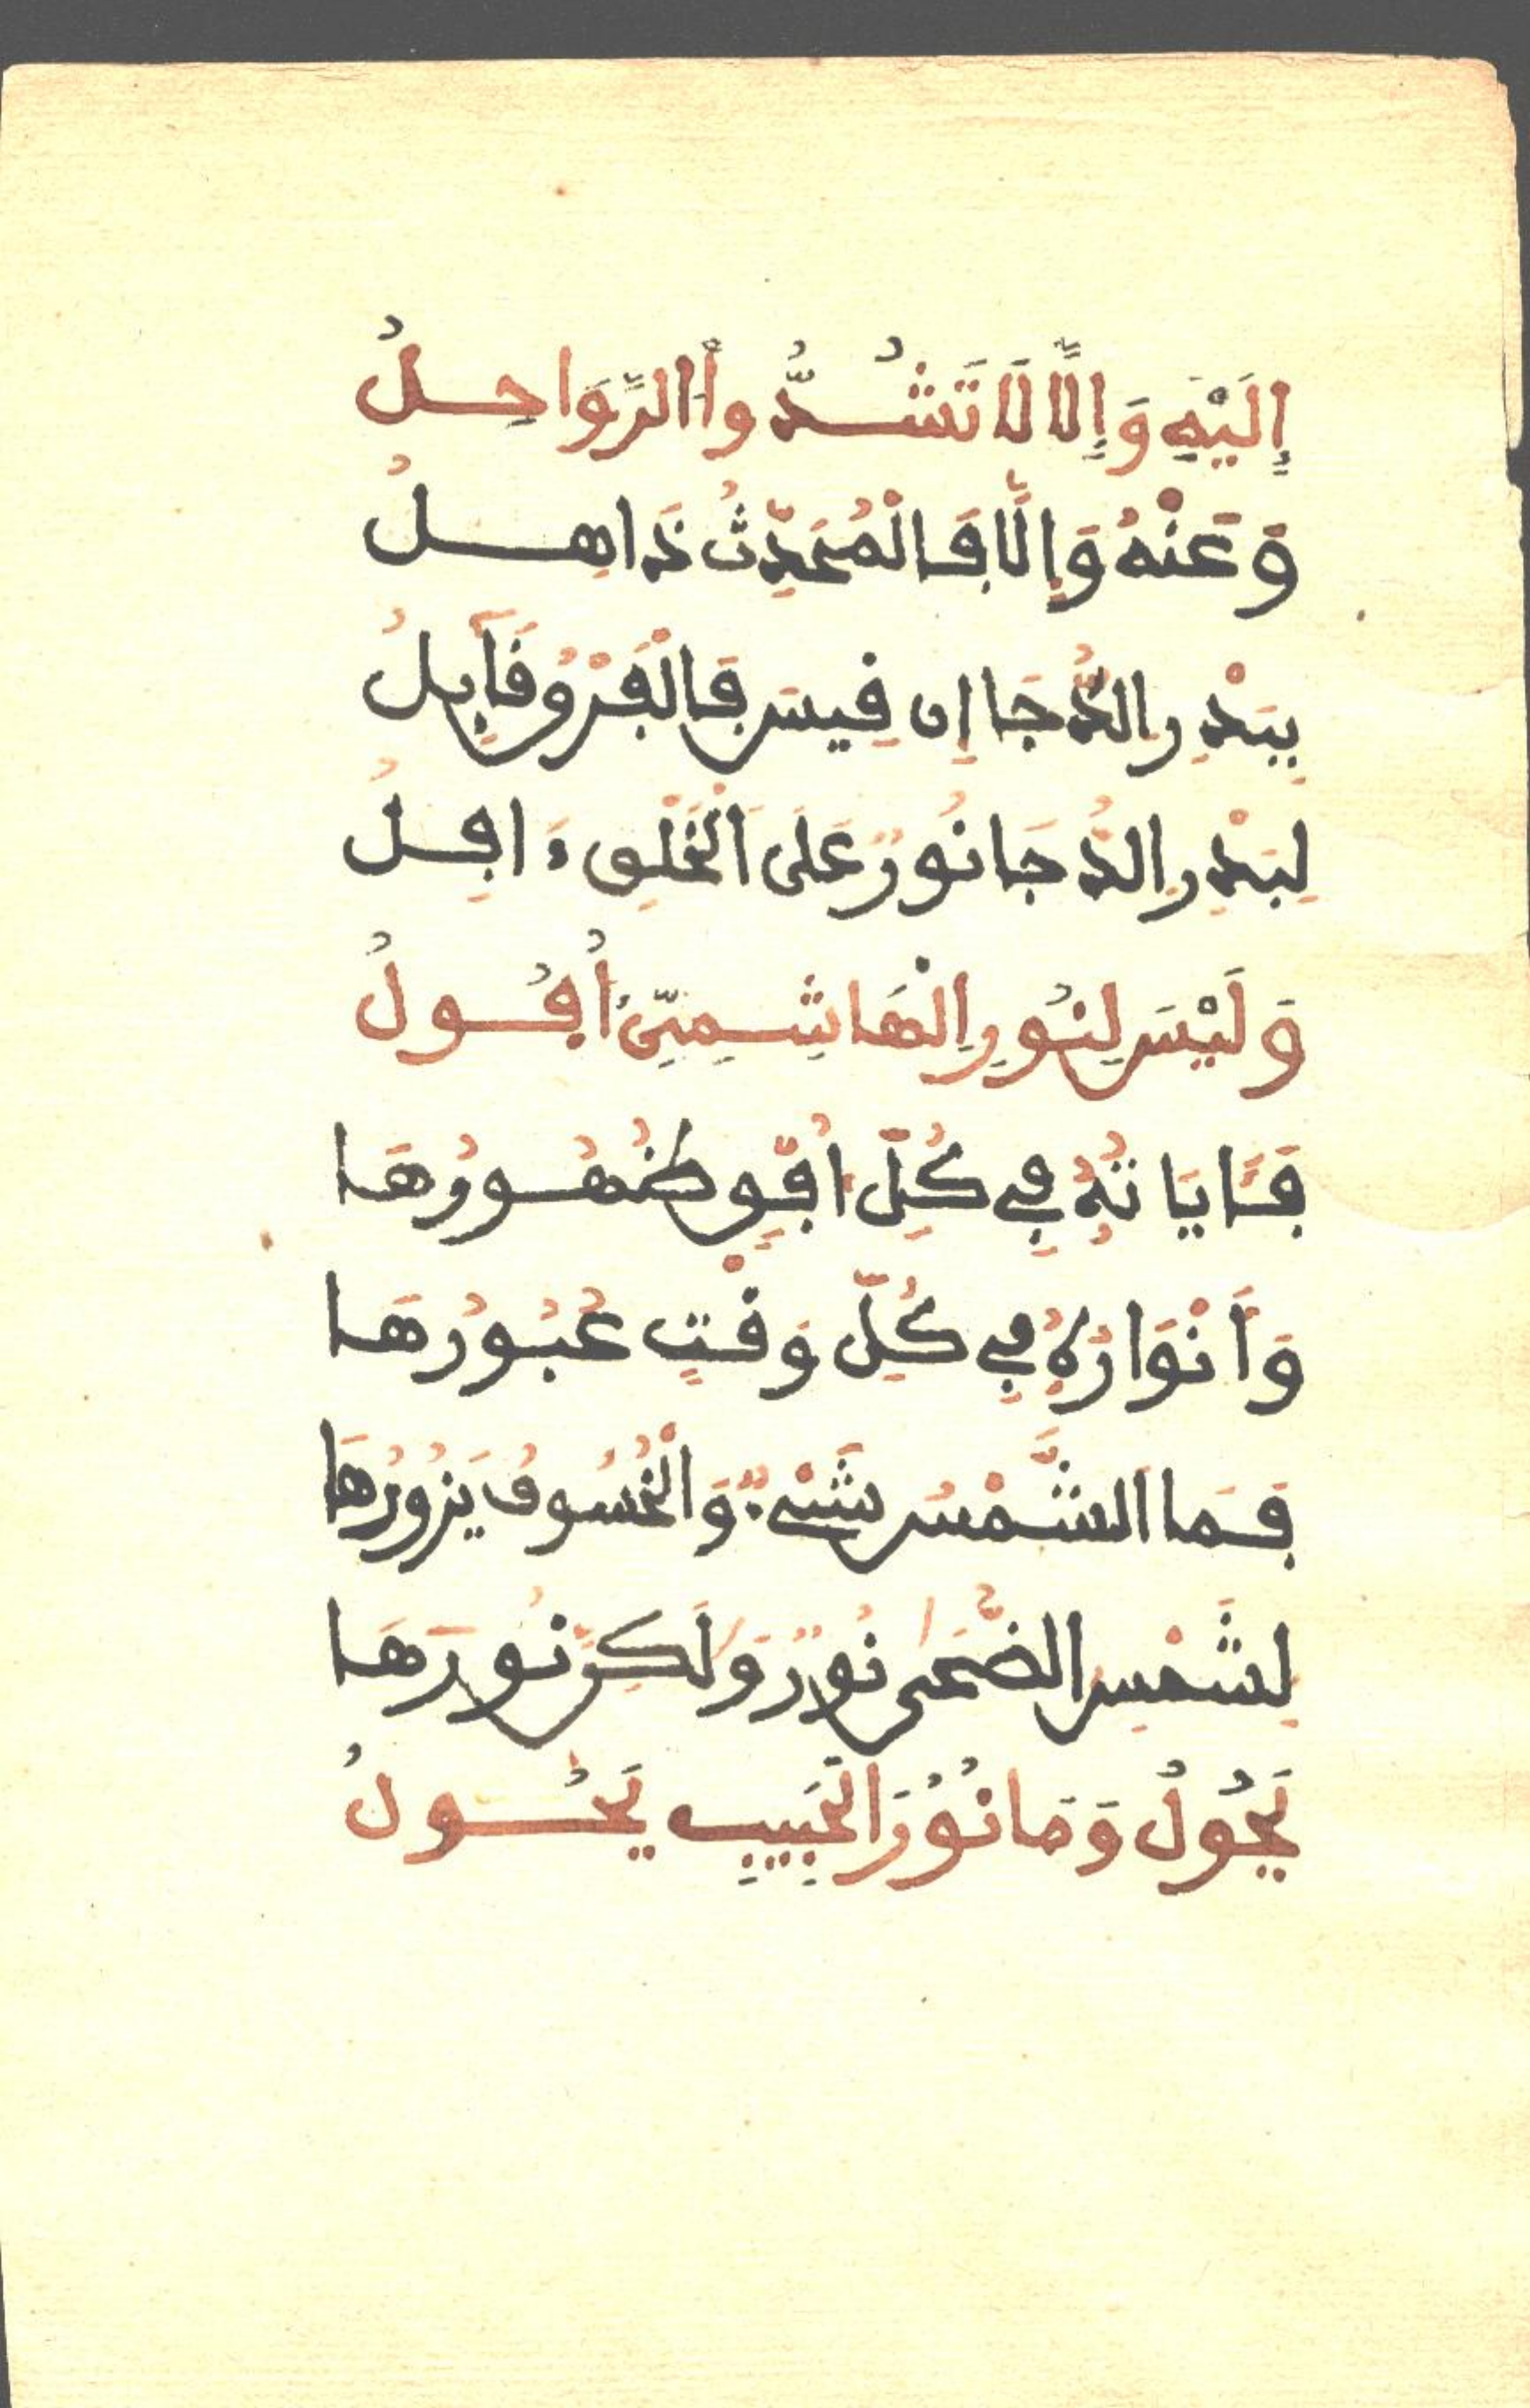 إِلَيْهِ وَإِلَّا لَا تَشُدُّواْ الرَّوَاحِلُ
وَعَنْهُ وَإِلَّا فَالْمُحَدِّثُ ذَاهِلُ
بِبَدْرِ الدُّجَا إِن فِيسَ فَالْفَرْقُ قَآبِلُ
لِبَدْرِ الدُّجَا نُورٌ عَلَى الْخَلْقِ ءَافِلُ
وَلَيْسَ لِنُورِ الْهَاشِمِيِّ أُفُولُ
فَئَايَاتُهُ فِي كُلِّ أُفْقٍ ظُهُورُهَا
وَأَنْوَارُهُ فِي كُلِّ وَقْتٍ عُبُورُهَا
فَمَا الشَّمْسُ شَيْءٌ وَالْخُسُوفُ يَزُورُهَا
لِشَمْسِ الضُّحَى نُورٌ وَلَكِنَّ نُورَهَا
يَحُولُ وَمَا نُورُ الْحَبِيبِ يَحُولُ